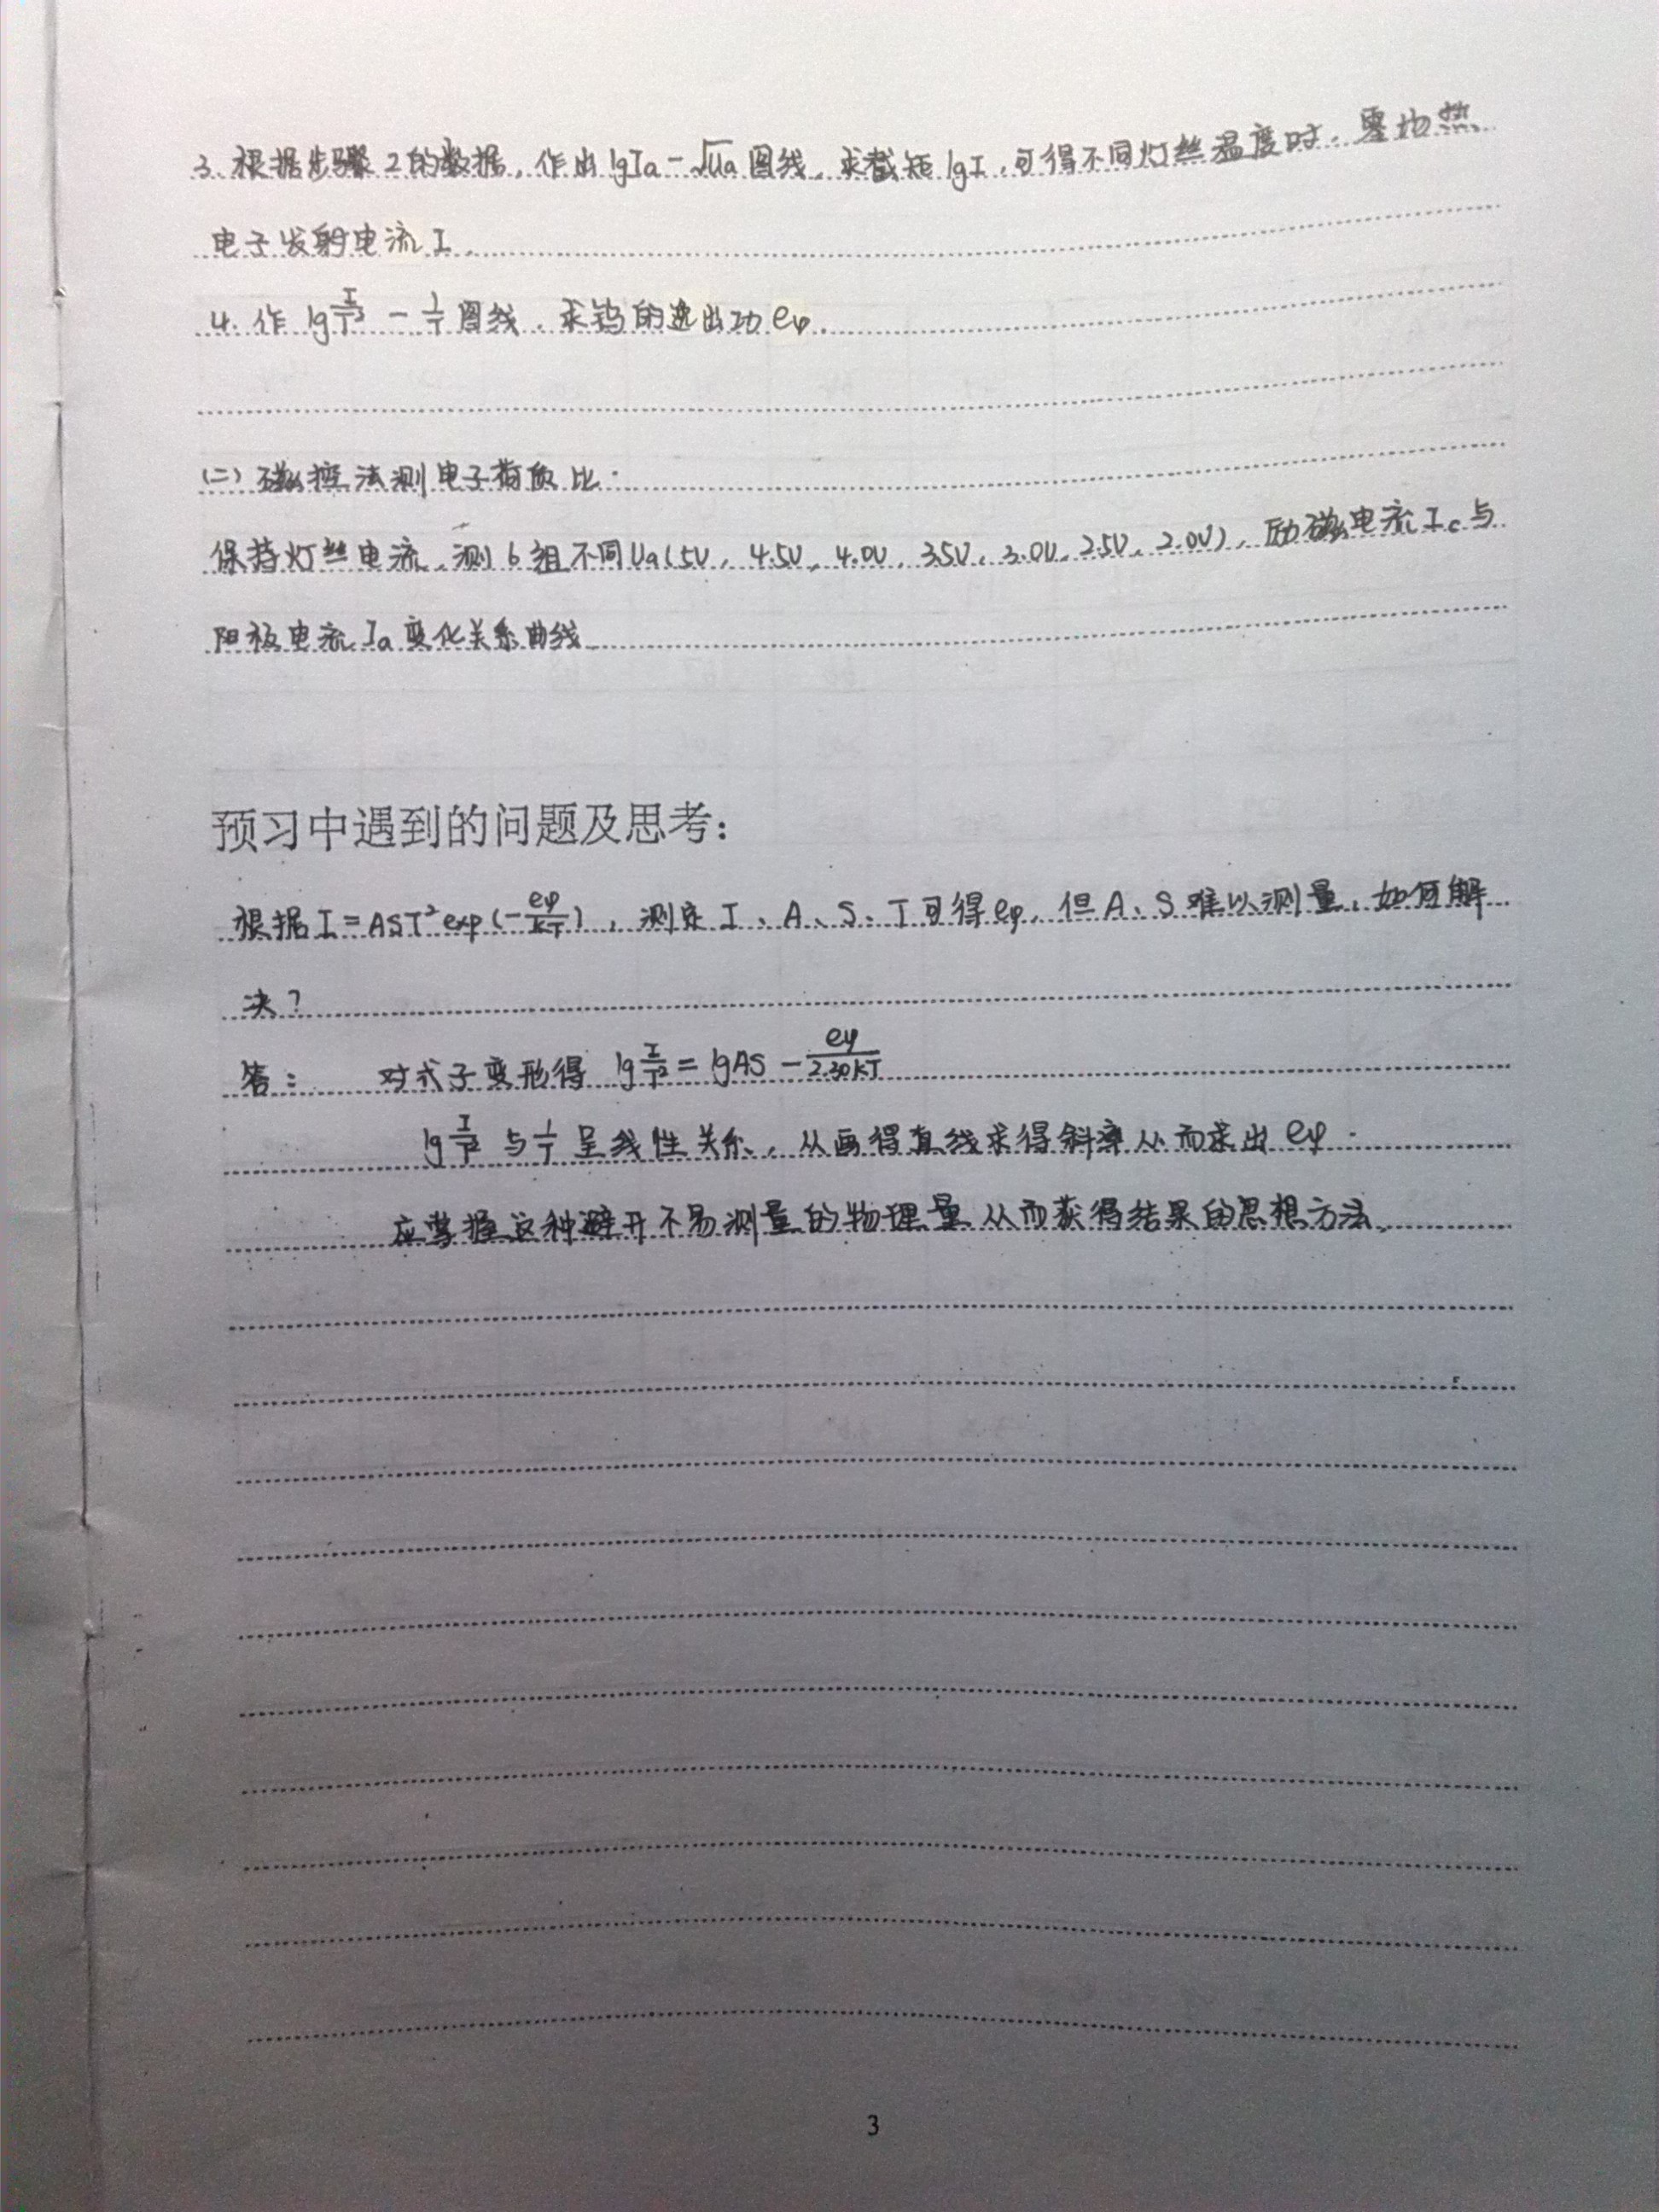 3. 根据步骤2的数据，作出lgIa－√Ua图线，求截矩lgI，可得不同灯丝温度时，零场热
电子发射电流I．
4. 作 lg I/T² － 1/T 图线，求钨的逸出功eφ．
(二) 磁控法测电子荷质比：
保持灯丝电流，测6组不同Ua(5V，4.5V，4.0V，3.5V，3.0V，2.5V，2.0V)，励磁电流Ic与
阳极电流Ia变化关系曲线
预习中遇到的问题及思考：
根据I=AST²exp(-eφ/kT)，测定I、A、S、T可得eφ，但A、S难以测量，如何解
决？
答： 对式子变形得 lg I/T² = lgAS － eφ/2.30kT
lg I/T² 与 1/T 呈线性关系，从画得直线求得斜率从而求出eφ．
应掌握这种避开不易测量的物理量从而获得结果的思想方法．
3